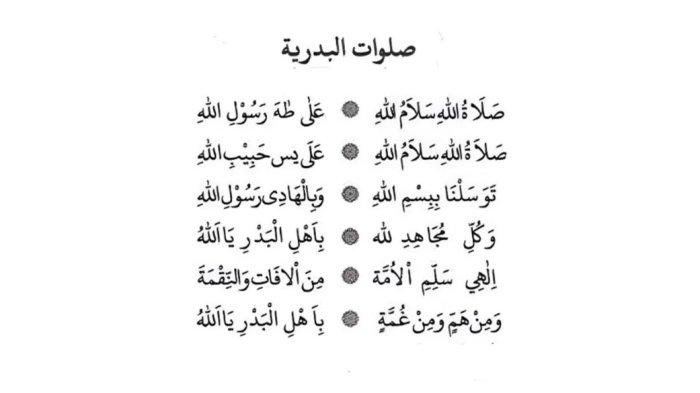 صلوات البدرية
صَلَاةُ اللهِ سَلَامُ اللهِ ۞ عَلَى طٰهَ رَسُوْلِ اللهِ
صَلَاةُ اللهِ سَلَامُ اللهِ ۞ عَلَى يس حَبِيْبِ اللهِ
تَوَسَلْنَا بِبِسْمِ اللهِ ۞ وَبِالْهَادِى رَسُوْلِ اللهِ
وَكُلِّ مُجَاهِدِ لله ۞ بِاَهْلِ الْبَدْرِ يَا اَللهُ
اِلٰهِي سَلِّمِ اْلاُمَّة ۞ مِنَ اْلافَاتِ وَالنِّقْمَةَ
وَمِنْ هَمٍّ وَمِنْ غُمَّةٍ ۞ بِاَهْلِ الْبَدْرِ يَا اَللهُ